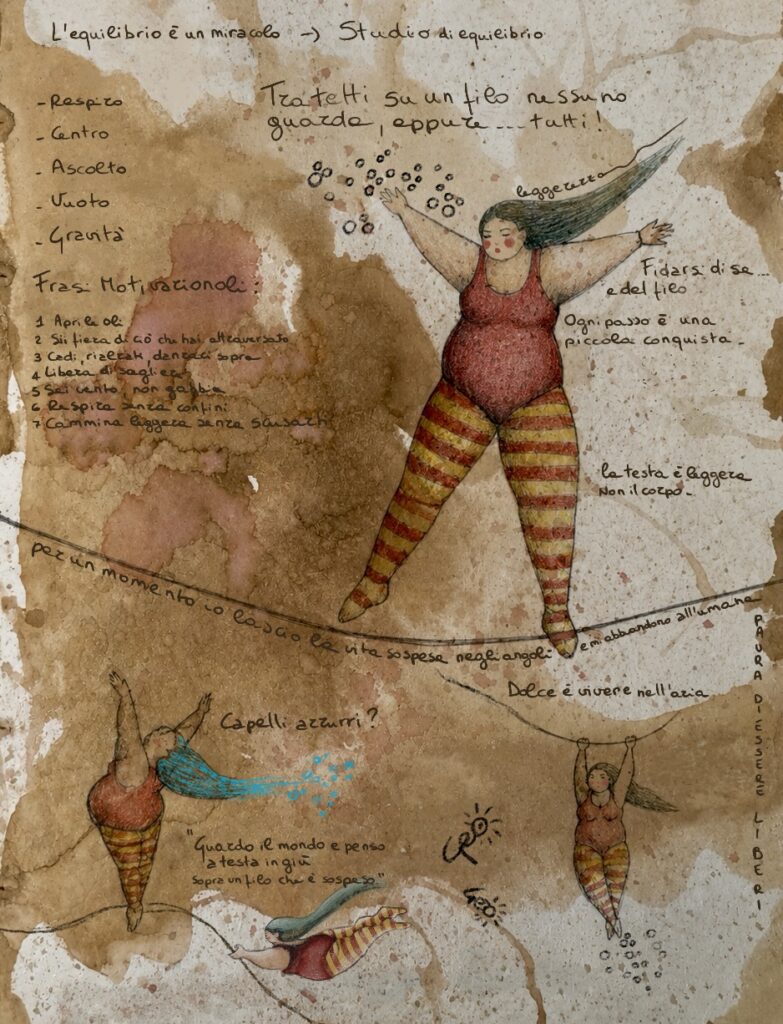 L'equilibrio è un miracolo → Studio di equilibrio
- Respiro
- Centro
- Ascolto
- Vuoto
- Gravità
Tratetti su un filo nessuno
guarda, eppure ... tutti!
leggerezza
Fidarsi di se...
e del filo
Ogni passo è una
piccola conquista.
Frasi Motivazionali:
1 Apri le ali
2 Sii fiera di ciò che hai attraversato
3 Cadi, rialzati, danzaci sopra
4 Libera di sagliere
5 Sei vento, non gabbia
6 Respira senza confini
7 Cammina leggera senza scusarti
la testa è leggera
Non il corpo.
per un momento io lascio la vita sospesa negli angoli e mi abbandono all'umana
PAURA DI ESSERE LIBERI
Dolce è vivere nell'aria
Capelli azzurri?
"Guardo il mondo e penso
a testa in giù
sopra un filo che è sospeso"
Geo
Geo